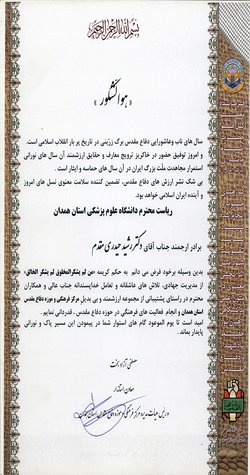 بسم الله الرحمن الرحیم
« هوالشکور »
سال های ناب وعاشورایی دفاع مقدس برگ زرینی در تاریخ پر بار انقلاب اسلامی است.
و امروز توفیق حضور در خاکریز ترویج معارف و حقایق ارزشمند آن سال های نورانی
استمرار مجاهدت ملّت بزرگ ایران در آن سال های حماسه و ایثار است .
بی شک نشر ارزش های دفاع مقدس، تضمین کننده سلامت معنوی نسل های امروز
و آینده ایران اسلامی خواهد بود.
ریاست محترم دانشگاه علوم پزشکی استان همدان
برادر ارجمند جناب آقای دکتر رشید حیدری مقدم
بدین وسیله برخود فرض می دانم به حکم کریمه «من لم یشکرالمخلوق لم یشکر الخالق»
از مدیریت جهادی، تلاش های عاشقانه و تعامل خداپسندانه جناب عالی و همکاران
محترم در راستای پشتیبانی از مجموعه ارزشمند و بی بدیل مرکز فرهنگی و موزه دفاع مقدس
استان همدان و انجام فعالیت های فرهنگی در حوزه دفاع مقدس، قدردانی نمایم.
امید است تا یوم الموعود گام های استوار شما در پیمودن این مسیر پاک و نورانی
پایدار بماند.
مصطفی آزادبخت
معاون استاندار